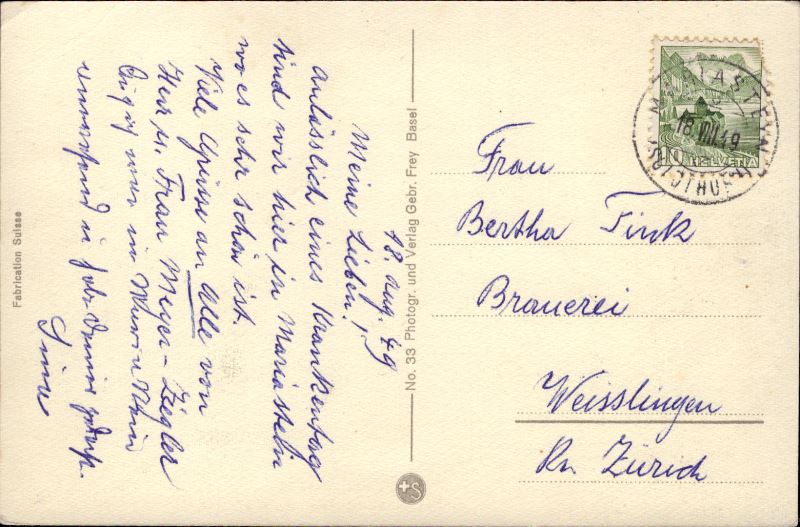 Fabrication Suisse
18. Aug. 49
Meine Lieben!
Anlässlich eines Krankentag
sind wir hier in Mariastein
wo es sehr schön ist.
Viele Grüsse an Alle von
Herr u. Frau Meyer-Ziegler
No. 33 Photogr. und Verlag Gebr. Frey Basel
+S
10 HELVETIA
MARIASTEIN
18.VIII.49
(SOLOTHURN)
Frau
Bertha Fink
Brauerei
Weisslingen
Kn. Zürich